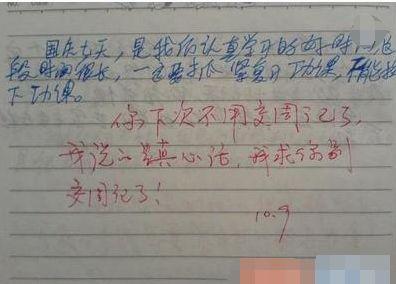 国庆七天，是我们认真学习的好时，这
段时间很长，一定要抓紧复习功课，不能拉
下功课。
你下次不用交周记了，
我说的是真心话，我求你别
交周记了！
10.9